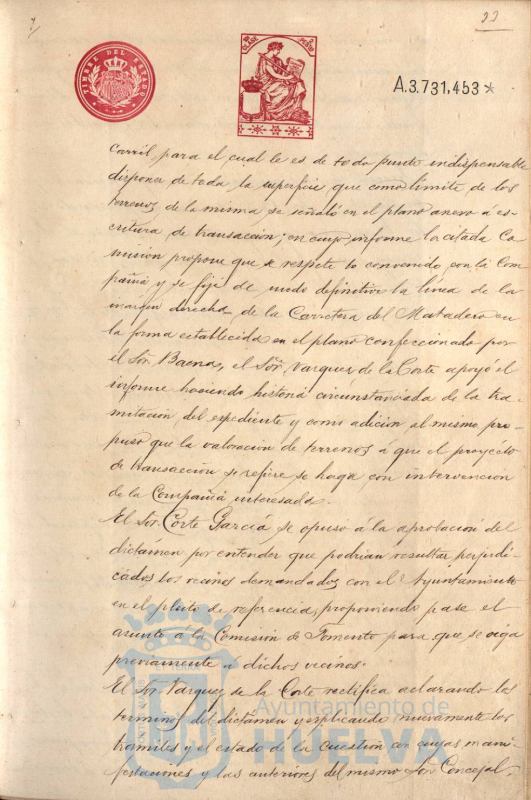 33
TIMBRE DEL ESTADO
A.3.731,453*
carril, para el cual le es de todo punto indispensable
disponer de toda la superficie que como límite de los
terrenos de la misma se señaló en el plano anexo á es-
critura de transacción; en cuyo informe la citada Co
misión propone que se respete lo convenido con la Com
pañía y se fije de modo definitivo la línea de la
margen derecha de la Carretera del Matadero en
la forma establecida en el plano confeccionado por
el Sor. Baena, el Sor. Vazquez de la Corte apoyó el
informe haciendo historia circunstanciada de la tra-
mitación del expediente y como adición al mismo pro-
puso que la valoración de terrenos á que el proyecto
de transacción se refiere se haga con intervención
de la Compañía interesada.
El Sor. Corte García se opuso á la aprobación del
dictámen por entender que podrían resultar perjudi-
cados los vecinos demandados con el Ayuntamiento
en el pleito de referencia, proponiendo pase el
asunto á la Comisión de Fomento para que se oiga
previamente á dichos vecinos.
El Sor. Vazquez de la Corte rectifica aclarando los
términos del dictamen y explicando nuevamente los
trámites y el estado de la cuestión con cuyas mani-
festaciones y las anteriores del mismo Sor. Concejal,
Ayuntamiento de
HUELVA